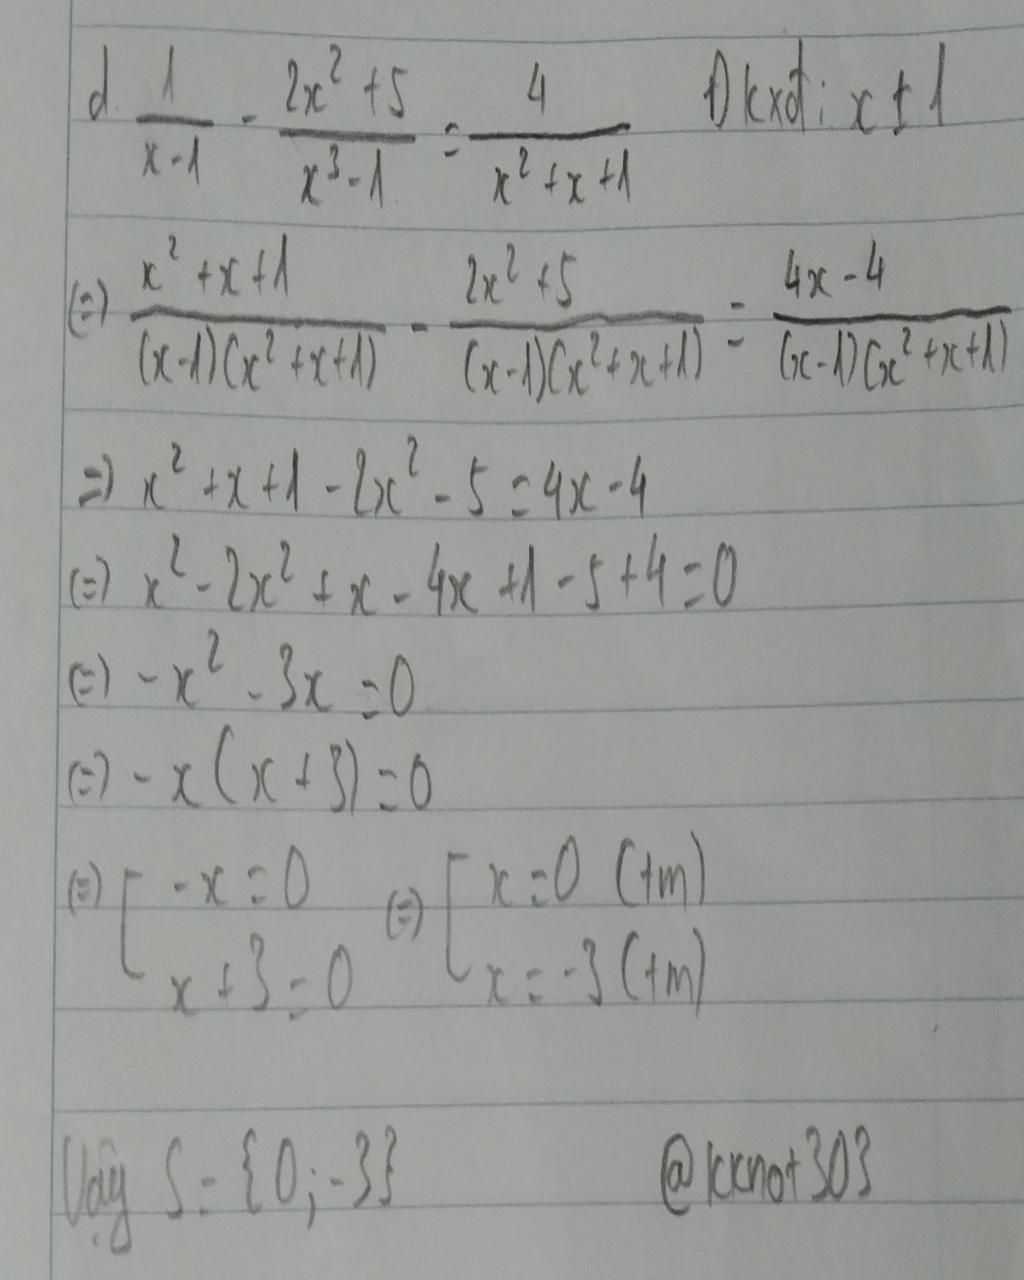 d. 1/(x-1) - (2x² + 5)/(x³ - 1) = 4/(x² + x + 1) Đkxđ: x ≠ 1
(=) (x² + x + 1)/((x-1)(x² + x + 1)) - (2x² + 5)/((x-1)(x² + x + 1)) = (4x - 4)/((x-1)(x² + x + 1))
=) x² + x + 1 - 2x² - 5 = 4x - 4
(=) x² - 2x² + x - 4x + 1 - 5 + 4 = 0
(=) -x² - 3x = 0
(=) -x(x + 3) = 0
(=) [ -x = 0 (=) [ x = 0 (tm)
x + 3 = 0 x = -3 (tm)
Vậy S = {0; -3} @kknot303